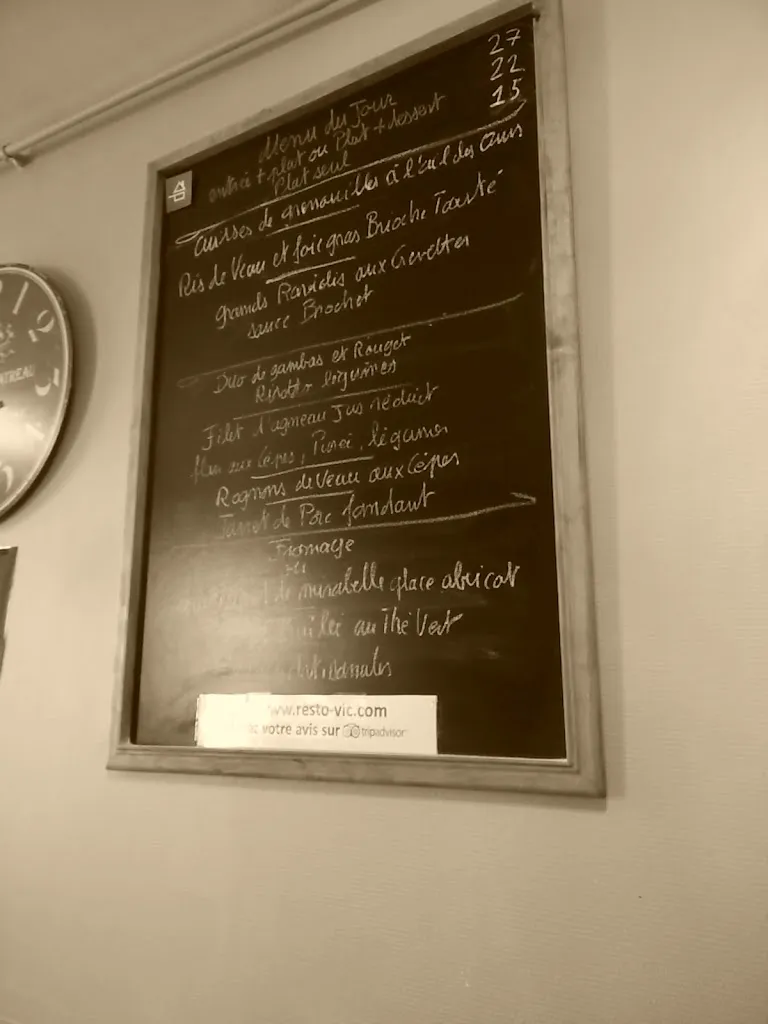 27
22
15
Menu du Jour
entrée + plat ou Plat + dessert
Plat seul
Cuisses de grenouilles à l'ail des Ours
Ris de Veau et foie gras Brioche Toasté
grands Raviolis aux Crevettes
sauce Brochet
Duo de gambas et Rouget
Risotto légumes
Filet d'agneau Jus réduit
flan aux Cèpes, Purée, légumes
Rognons de Veau aux Cèpes
Jarret de Porc fondant
Fromage
ou
de mirabelle glace abricot
au Thé Vert
www.resto-vic.com
votre avis sur tripadvisor